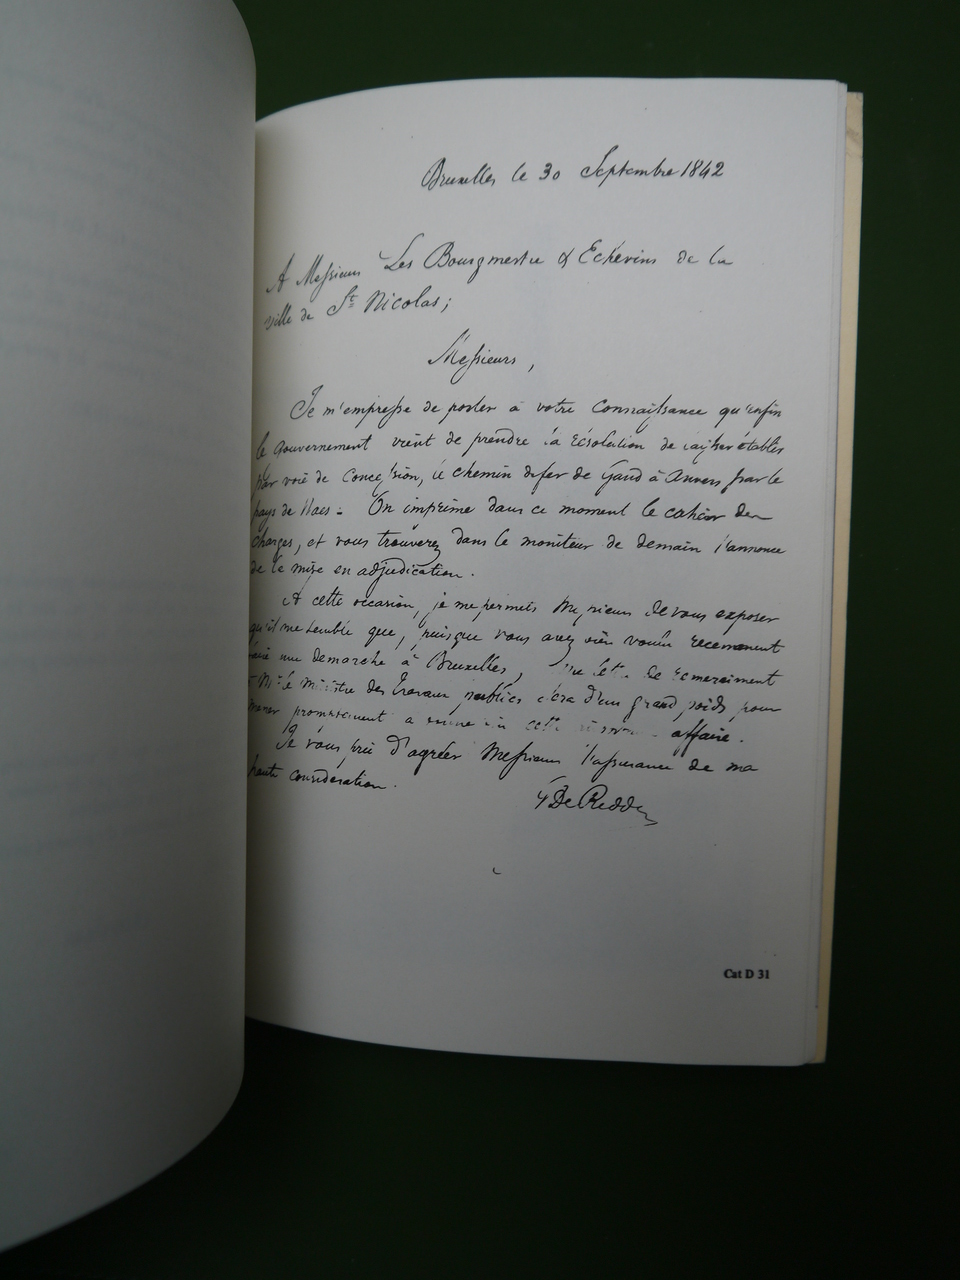 Bruxelles le 30 Septembre 1842
A Messieurs Les Bourgmestre & Echevins de la
ville de St Nicolas;
Messieurs,
Je m'empresse de porter à votre connaissance qu'enfin
le Gouvernement vient de prendre la résolution de laisser établir
par voie de Concession, le chemin de fer de Gand à Anvers par le
pays de Waes. On imprime dans ce moment le cahier des
charges, et vous trouverez dans le moniteur de demain l'annonce
de la mise en adjudication.
A cette occasion, je me permets Messieurs de vous exposer
qu'il me semble que, puisque vous avez bien voulu recemment
faire une demarche à Bruxelles, une lettre de remerciment
à Mr le Ministre des travaux publics sera d'un grand poids pour
mener promptement a cette affaire.
Je vous prie d'agréer Messieurs l'assurance de ma
haute considération.
De Ridder
Cat D 31